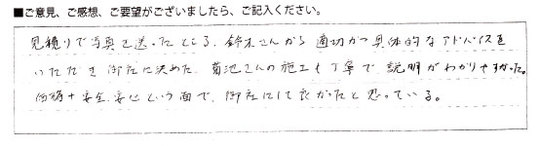 ■ご意見、ご感想、ご要望がございましたら、ご記入ください。
見積りで写真を送ったところ、鈴木さんから適切かつ具体的なアドバイスを
いただき御社に決めた。菊池さんの施工も丁寧で説明がわかりやすかった。
価格＋安全、安心という面で、御社にして良かったと思っている。